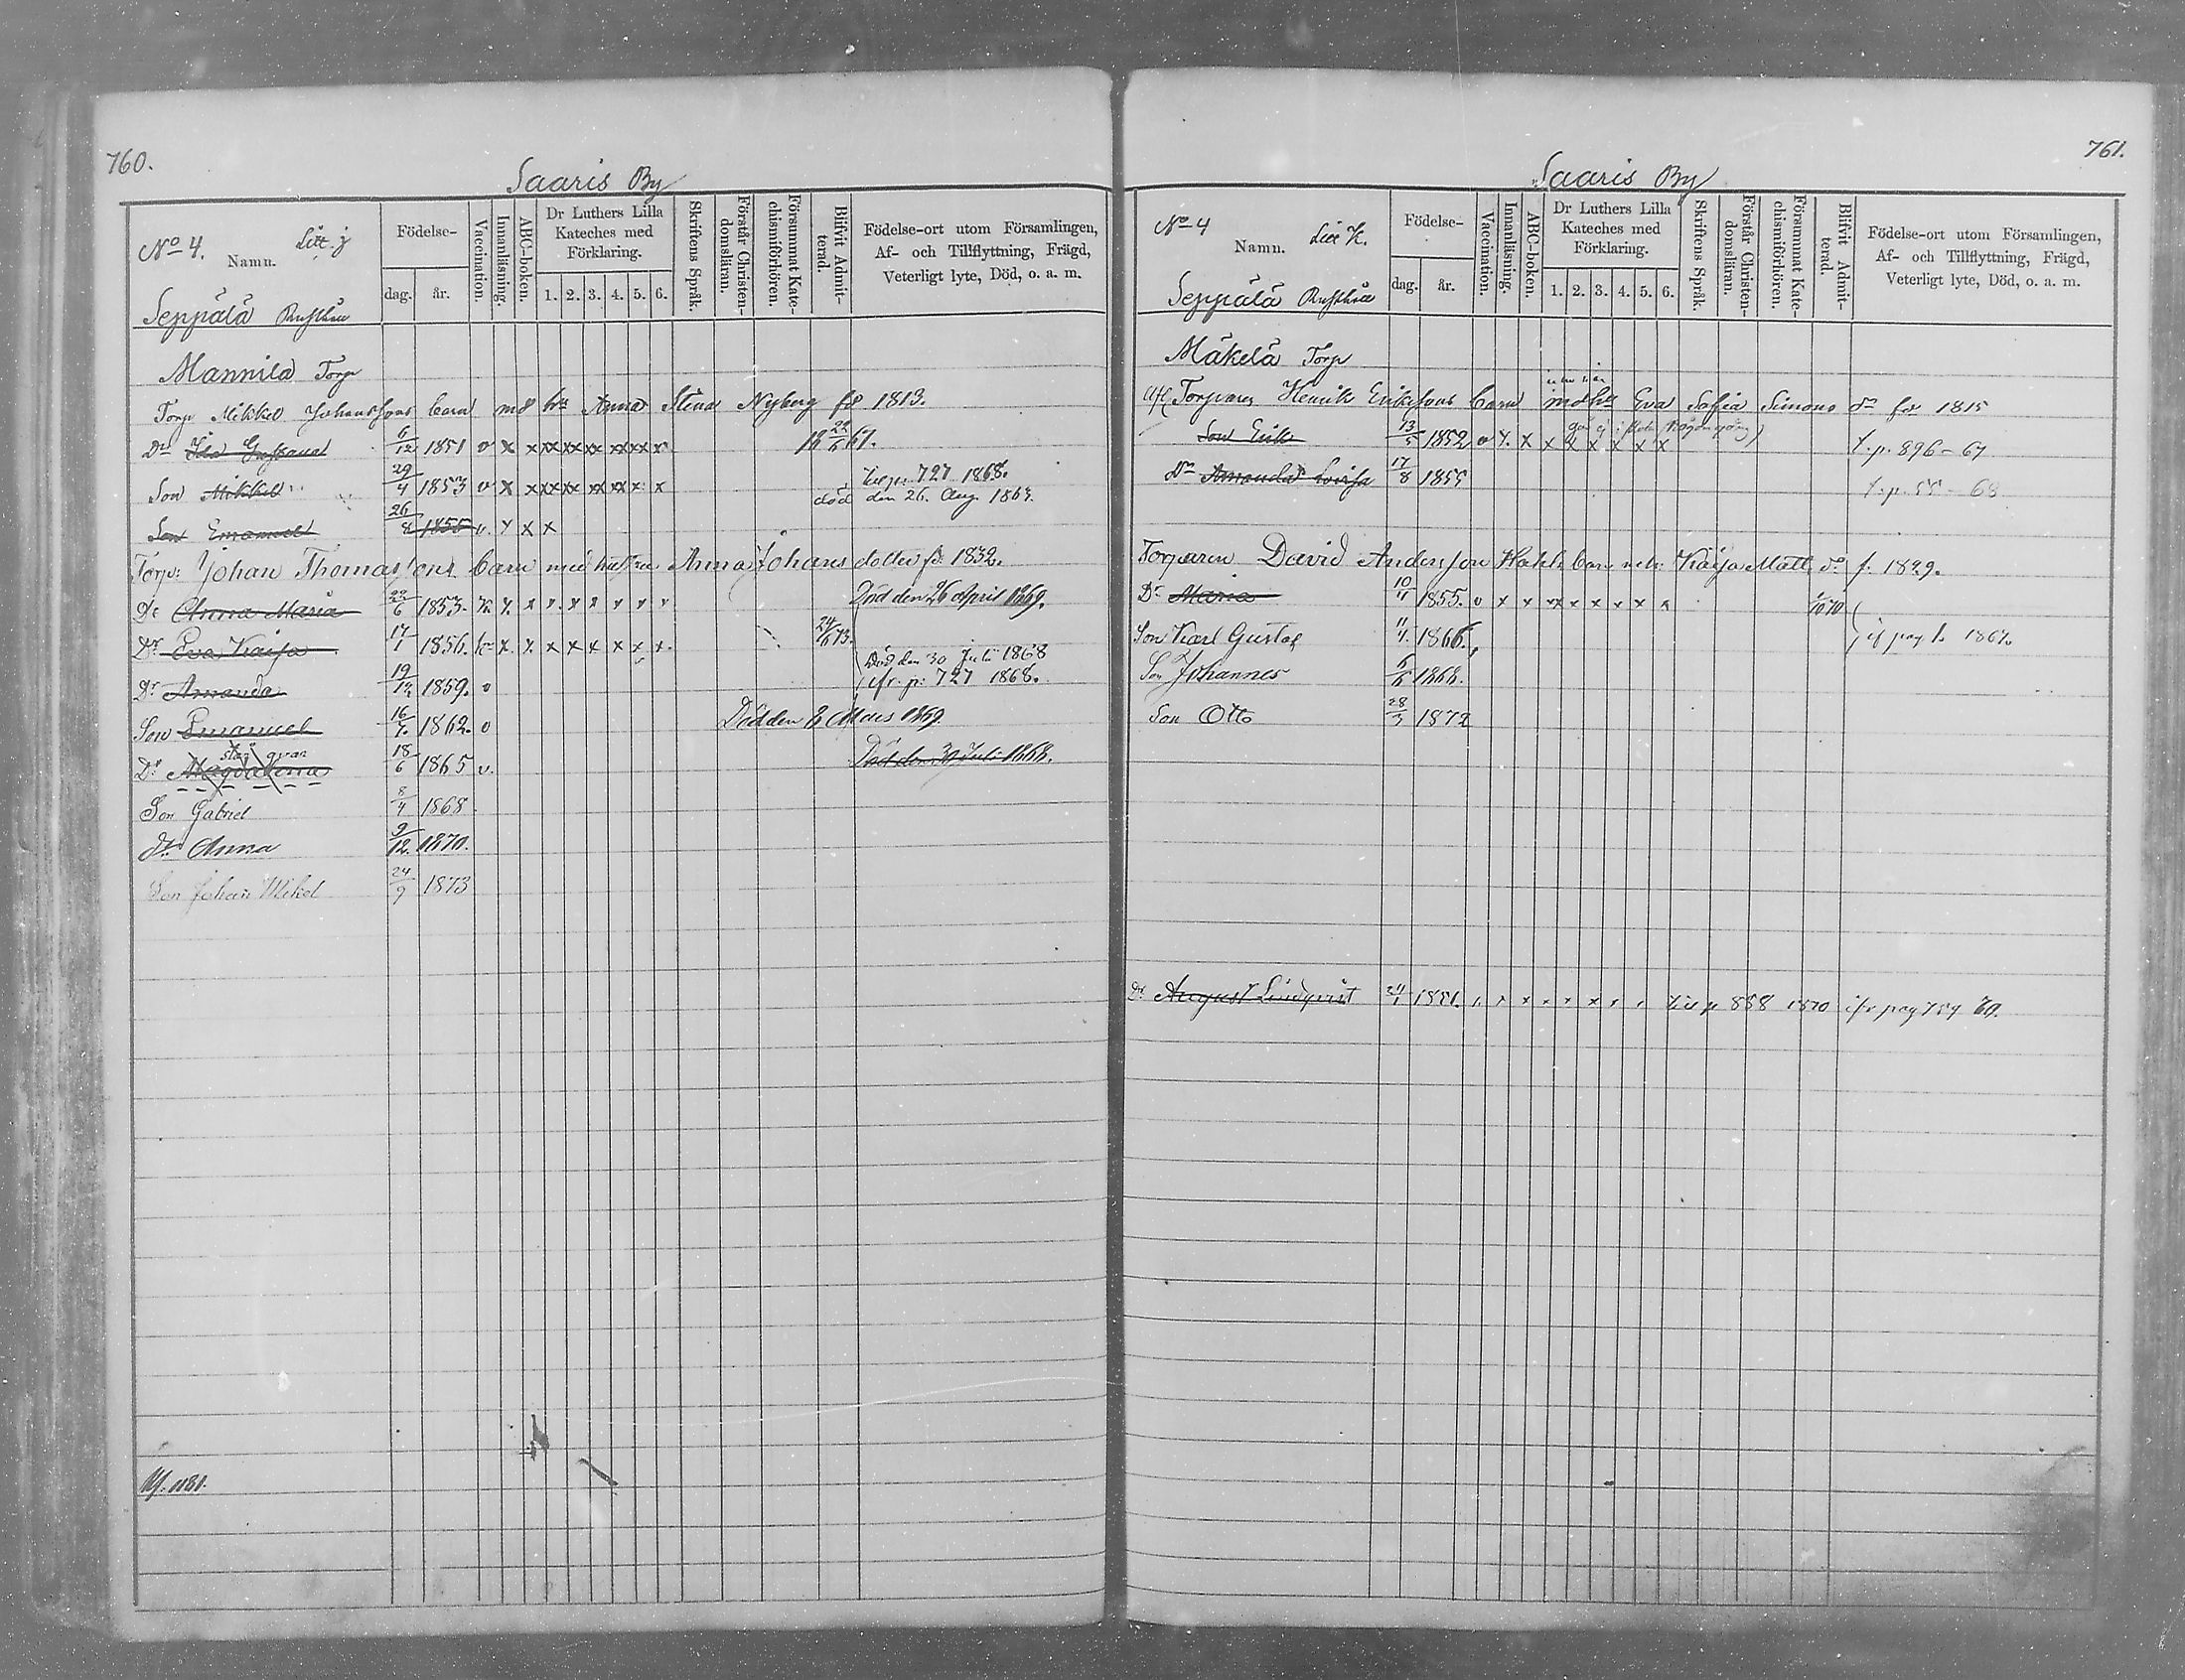 760.
Saaris By
No 4. Litt. j
Namn.
Födelse-
dag. år.
Vaccination.
Innanläsning.
ABC-boken.
Dr Luthers Lilla Kateches med Förklaring.
1. 2. 3. 4. 5. 6.
Skriftens Språk.
Förstår Christendomsläran.
Försummat Katechismiförhören.
Blifvit Admitterad.
Födelse-ort utom Församlingen, Af- och Tillflyttning, Frägd, Veterligt lyte, Död, o. a. m.
Seppälä Rusthåll
Mannila Torp
Torp Mikkel Johanssons barn md hu Anna Stina Nyberg fö 1813.
Dr Ida Gustava 6/12 1851 v x x xx xx xx xx xx x 67.
Son Mikkel 29/4 1853 v x x xx xx xx xx x x 727 1868.
död den 26. Aug. 1867.
Son Emanuel 26/8 1855 v. x x x
Torp: Johan Thomassons barn med hustru Anna Johans dotter f. 1832.
Dr Anna Maria 22/6 1853. x x x x x x x x Död den 26 April 1869.
Dr Eva Kaisa 17/1 1856. x x x x x x x x 73.
Död den 30 Juli 1868
Dr Amanda 19/12 1859. v cfr. p: 727 1868.
Son Emanuel 16/7. 1862. v Död den 8 Mars 1869.
står qvar
Dr Magdalena 18/6 1865 v. Död den 30 Juli 1868.
Son Gabriel 8/4 1868
dr Anna 9/12. 1870.
Son Johan Mikel 24/9 1873
761.
Saaris By
No 4 Litt K.
Namn.
Födelse-
dag. år.
Vaccination.
Innanläsning.
ABC-boken.
Dr Luthers Lilla Kateches med Förklaring.
1. 2. 3. 4. 5. 6.
Skriftens Språk.
Förstår Christendomsläran.
Försummat Katechismiförhören.
Blifvit Admitterad.
Födelse-ort utom Församlingen, Af- och Tillflyttning, Frägd, Veterligt lyte, Död, o. a. m.
Seppälä Rusthåll
Mäkelä Torp
Afl Torparen Henrik Erikssons barn md hu Eva Sofia Simons dr fö 1815
Son Erik 13/5 1852 v x. x x x x x x x t. p. 896 - 67
dr Amanda Lovisa 17/8 1855 t. p. 55 - 68
Torparen David Andersson barn Kaisa Matt. dr f. 1829.
Dr Maria 10/11 1855. v x x xx x x x x x
Son Karl Gustaf 11/4. 1866. cfr pag 1867.
Son Johannes 1868.
Son Otto 28/3 1872
Dr August Lindqvist 24/1 1851. x x x x x x till p 888 1870 cfr pag 759 69.